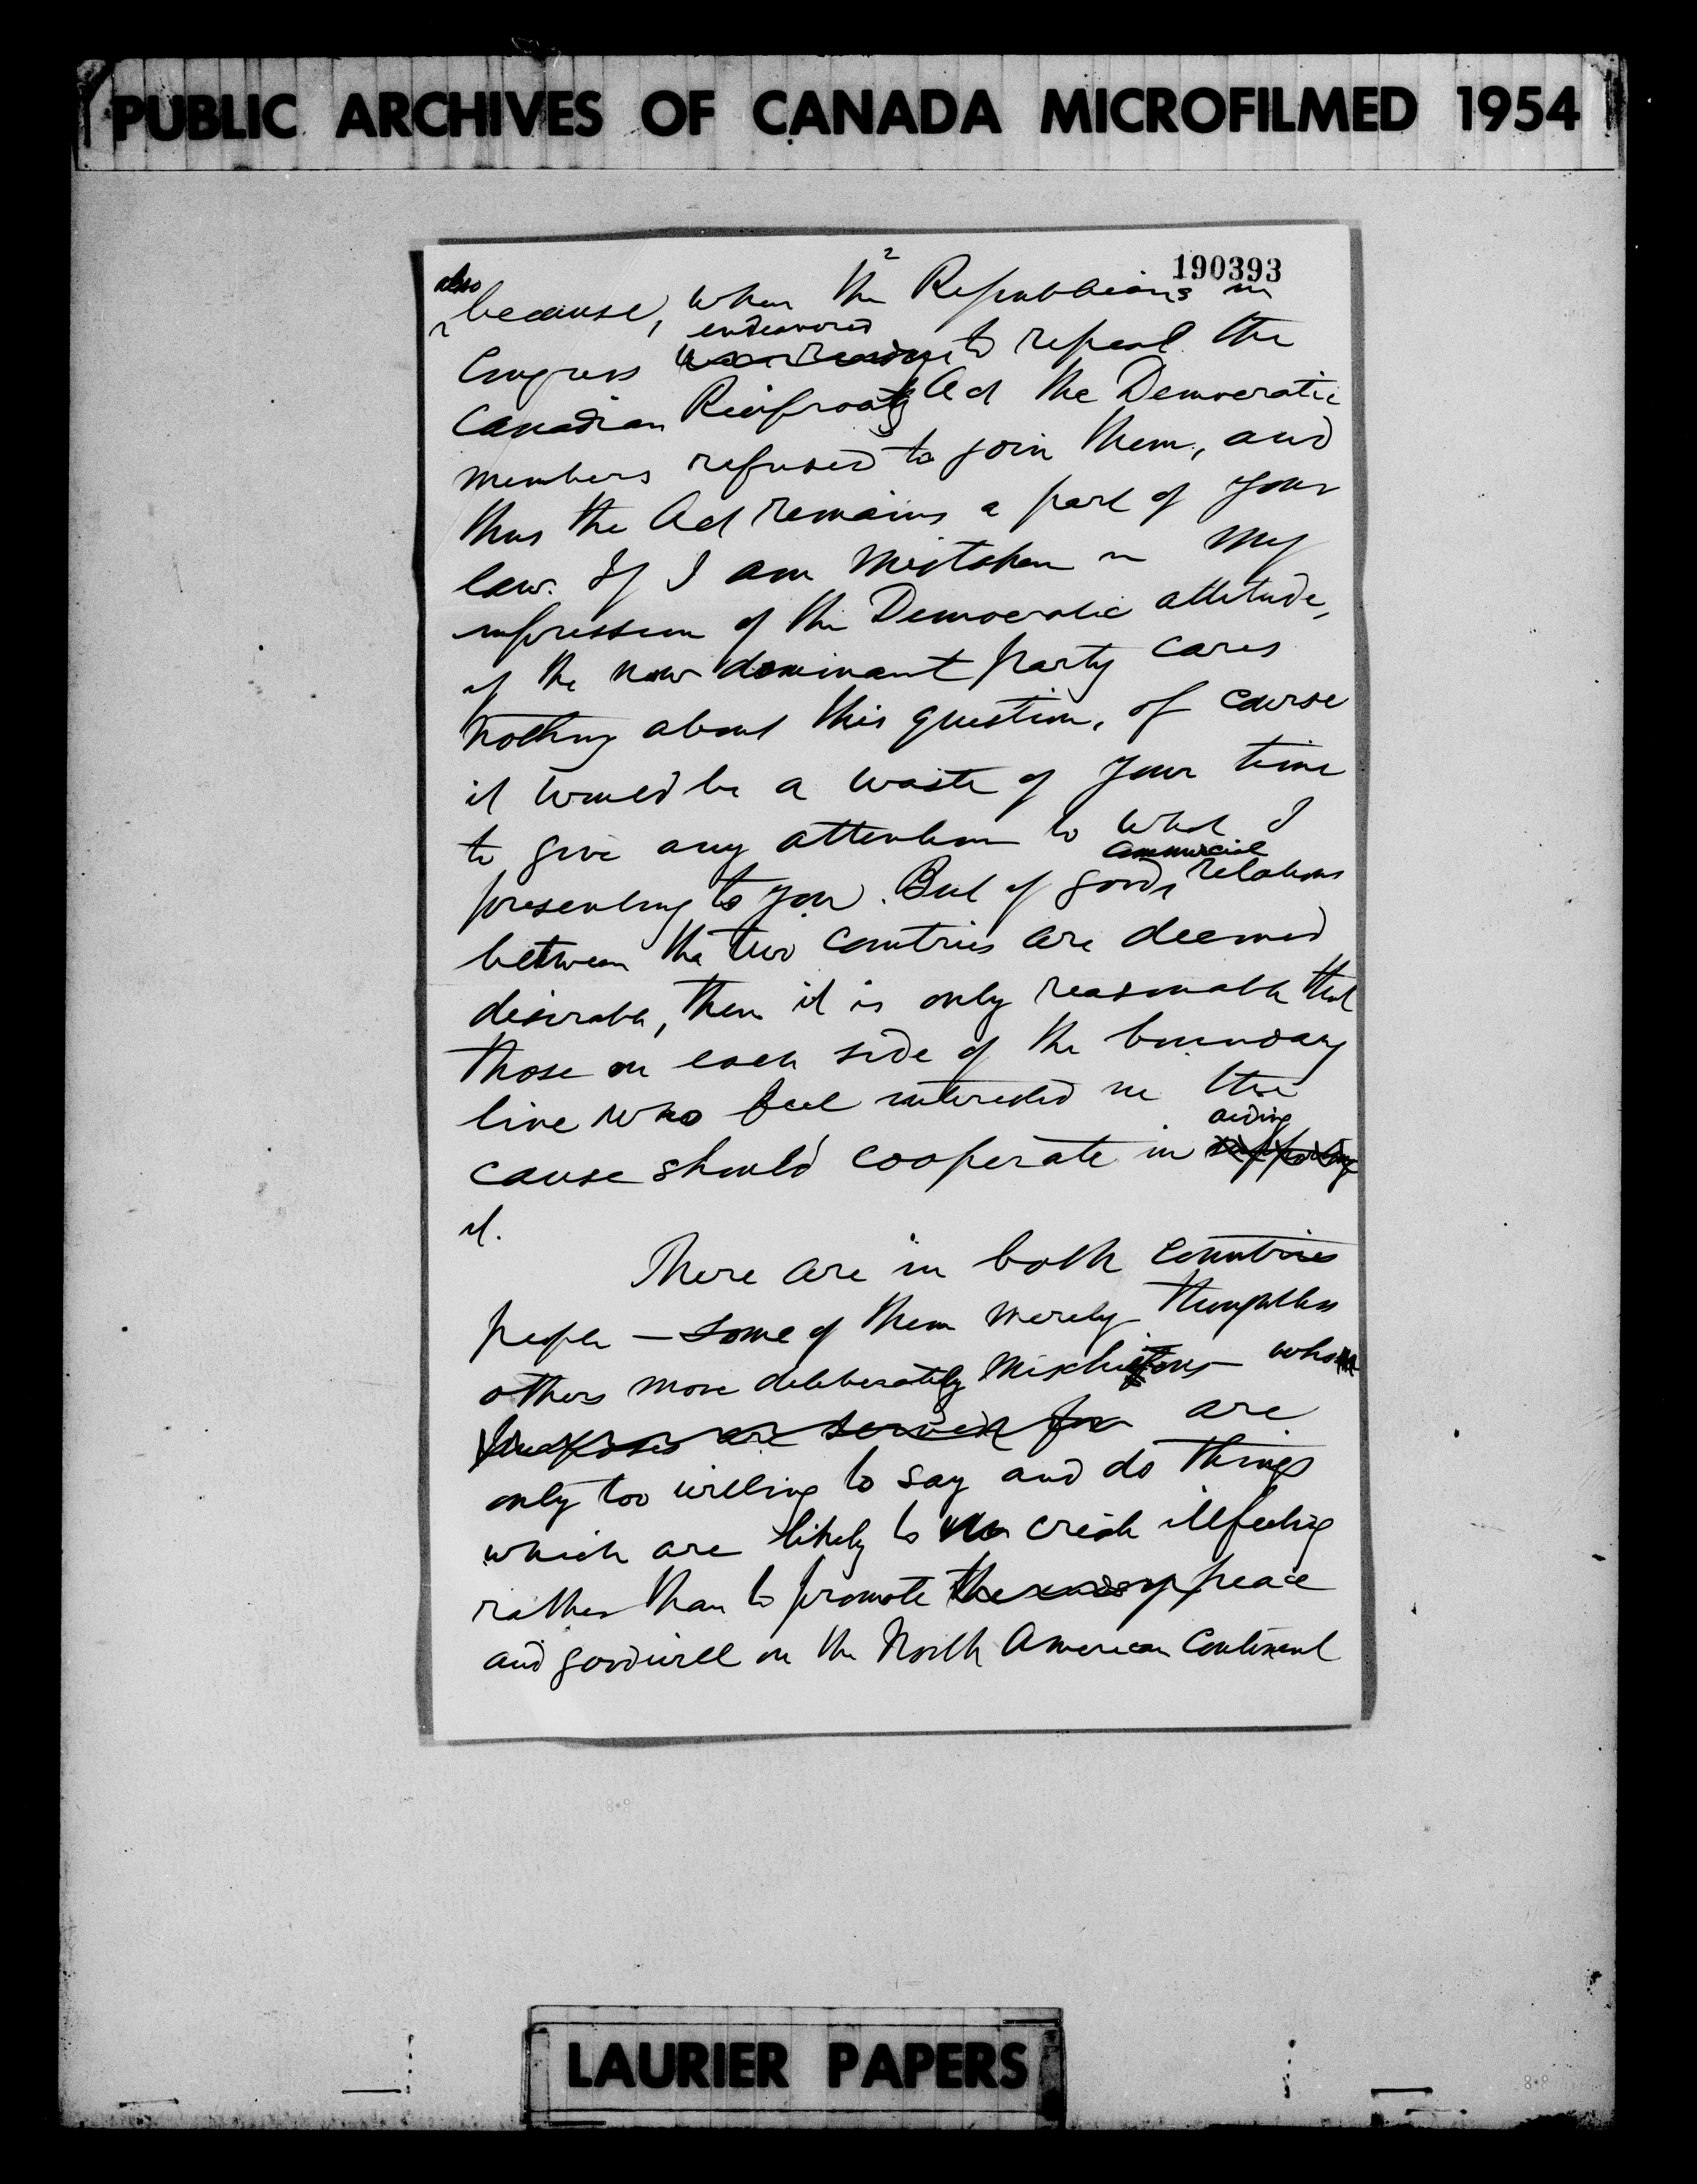 PUBLIC ARCHIVES OF CANADA MICROFILMED 1954
2
190393
also
because, when the Republicans in
endeavored
Congress to repeal the
Canadian Reciprocity Act the Democratic
members refused to join them, and
thus the Act remains a part of your
law. If I am mistaken in my
impression of the Democratic attitude,
if the now dominant party cares
nothing about this question, of course
it would be a waste of your time
to give any attention to what I
commercial
presenting to you. But if good relations
between the two countries are deemed
desirable, then it is only reasonable that
those on each side of the boundary
line who feel interested in the
aiding
cause should cooperate in supporting
it.
There are in both countries
people — some of them merely thoughtless
others more deliberately mischievous — who
purposes are served for are
only too willing to say and do things
which are likely to create illfeeling
rather than to promote peace
and goodwill on the North American Continent
LAURIER PAPERS